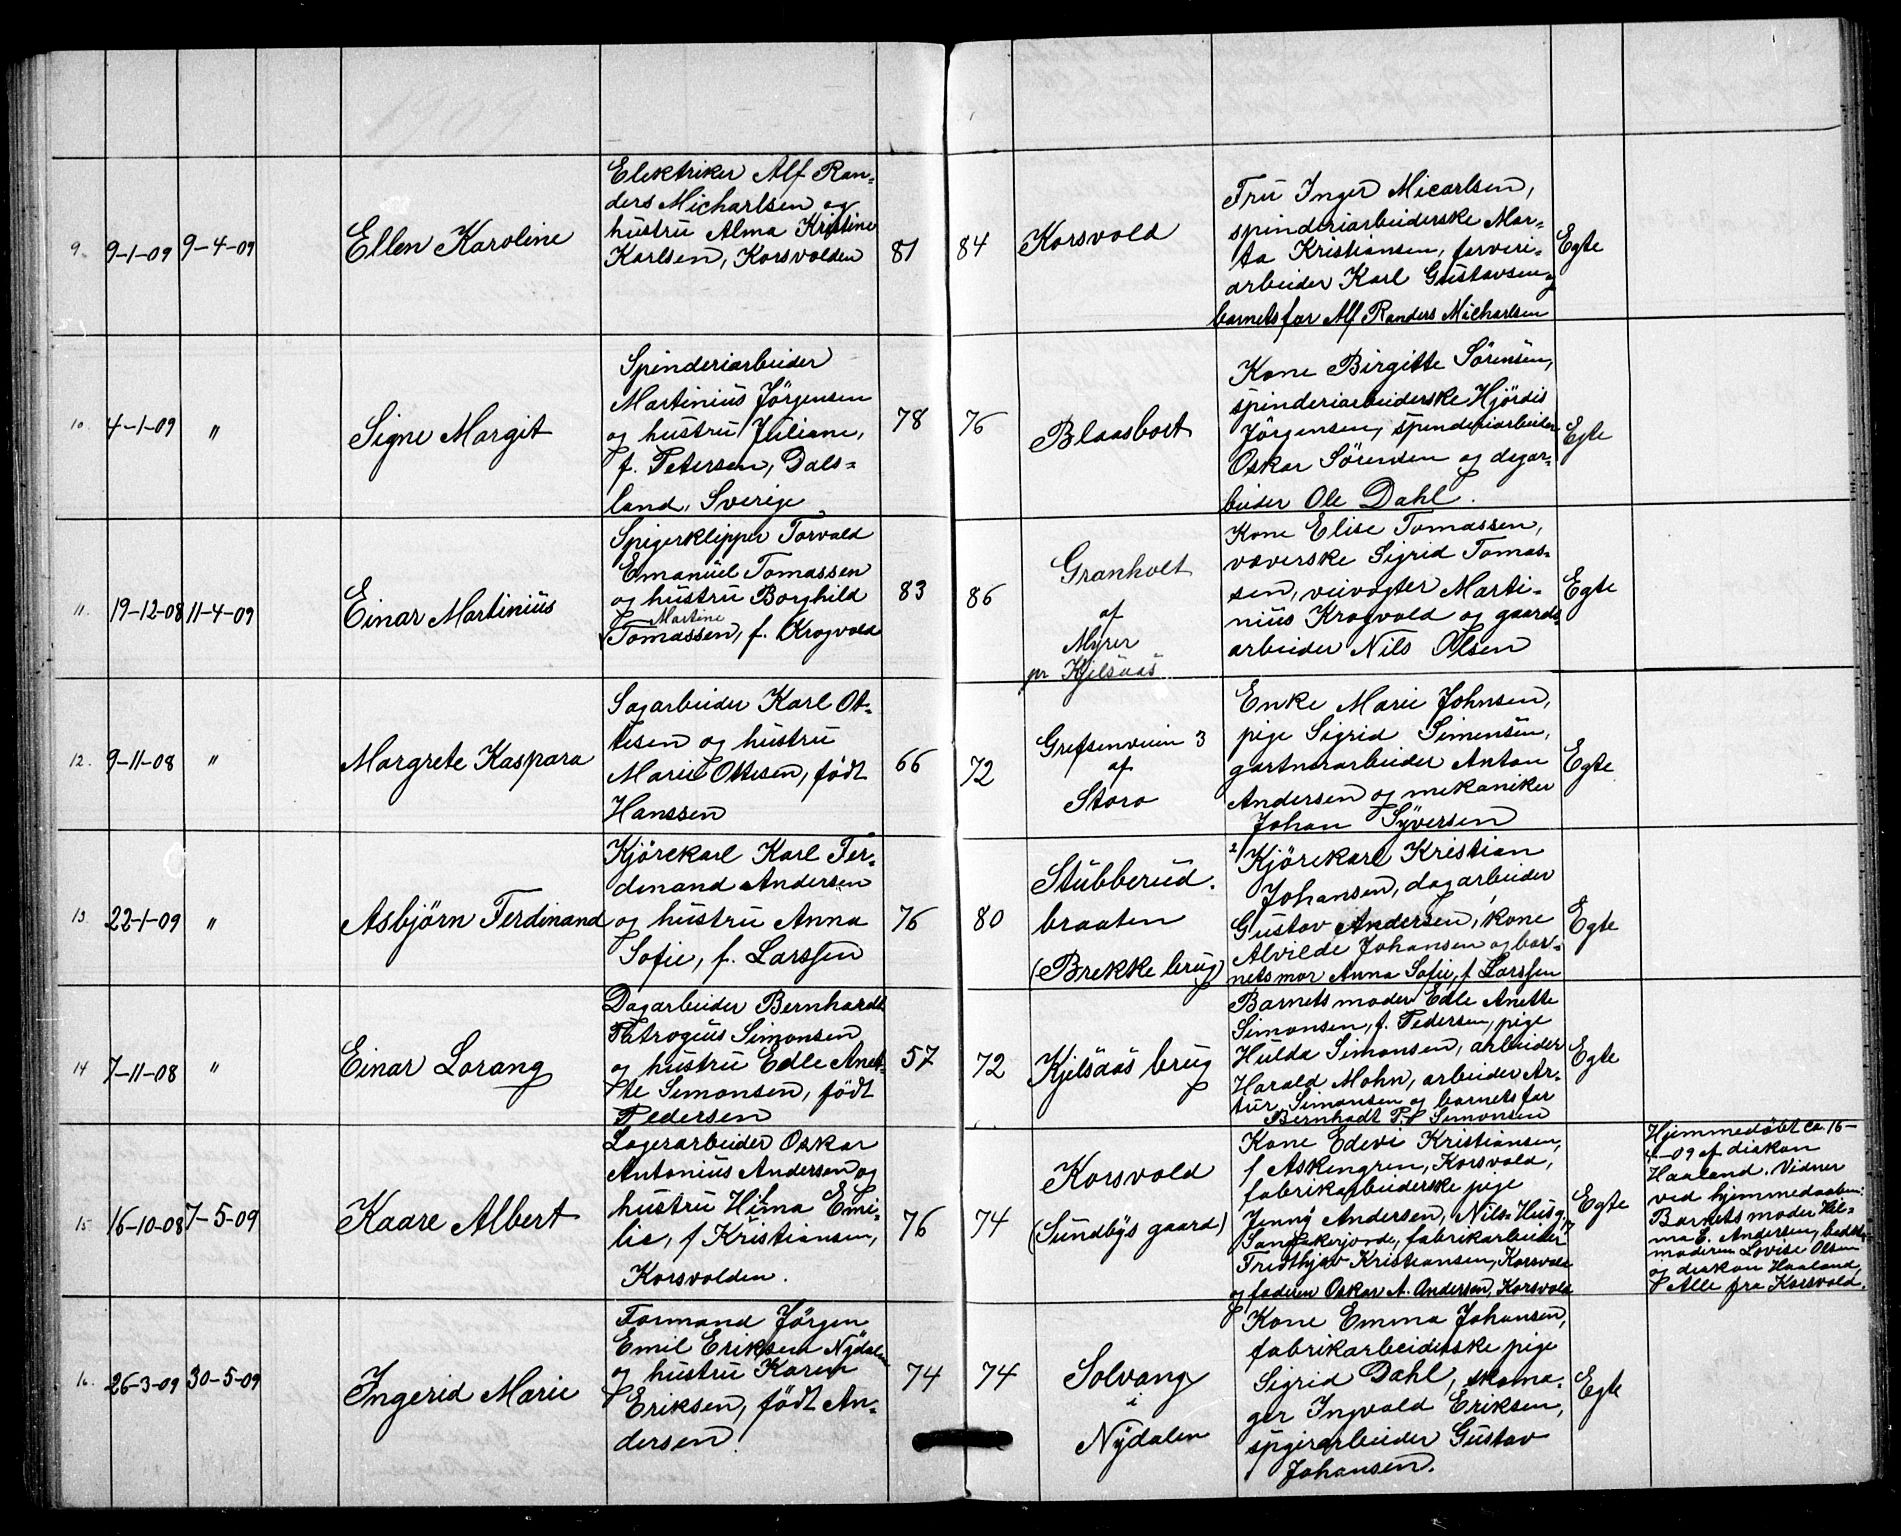 9. 9-1-09 9-4-09 Ellen Karoline
Elektriker Alf Ran=
ders Micharlsen og
hustru Alma Kristine
Karlsen, Korsvolden
81 84 Korsvold
Fru Inger Micarlsen,
spinderiarbeiderske Mar=
ta Kristiansen, farveri=
arbeider Karl Gustavsen og
barnets far Alf Randers Micharlsen
Egte
10. 4-1-09 " Signe Margit
Spinderiarbeider
Martinius Jørgensen
og hustru Juliane,
f. Petersen, Dals=
land, Sverige
78 76 Blaasbort
Kone Birgitte Sörensen,
spinderiarbeiderske Hjördis
Jörgensen, spinderiarbeider
Oskar Sörensen og dagar=
beider Ole Dahl.
Egte
11. 19-12-08 11-4-09 Einar Martinius
Spigerklipper Torvald
Emanuel Tomassen
og hustru Borghild
Martine
Tomassen, f. Krogvold
83 86 Granholt
af
Myrer
pr Kjelsaas
Kone Elise Tomassen,
væverske Sigrid Tomas=
sen, veivogter Marti=
nius Krogvold og gaards=
arbeider Nils Olsen
Egte
12. 9-11-08 " Margrete Kaspara
Sagarbeider Karl Ot=
tesen og hustru
Marie Ottesen, födt
Hanssen
66 72 Grefsenveien 3
af
Storo
Enke Marie Johnsen,
pige Sigrid Simensen,
gartnerarbeider Anton
Andersen og mekaniker
Johan Syversen
Egte
13. 22-1-09 " Asbjörn Ferdinand
Kjörekarl Karl Fer=
dinand Andersen
og hustru Anna
Sofie, f. Larssen
76 80 Stubberud.
braaten
(Brekke brug)
Kjörekarl Kristian
Johansen, dagarbeider
Gustav Andersen, kone
Alvilde Johansen og bar=
nets mor Anna Sofie, f. Larssen
Egte
14 7-11-08 " Einar Lorang
Dagarbeider Bernhardt
Patrogius Simonsen
og hustru Edle Anet=
te Simonsen, födt
Pedersen
57 72 Kjelsaas brug
Barnets moder Edle Anette
Simonsen, f. Pedersen, pige
Hulda Simonsen, arbeider
Harald Mohn, arbeider Ar=
tur Simonsen og barnets far
Bernhadt P. Simonsen
Egte
15 16-10-08 7-5-09 Kaare Albert
Lagerarbeider Oskar
Antonius Andersen og
hustru Hilma Emi=
lie, f Kristiansen,
Korsvolden.
76 74 Korsvold
(Sundbys gaard)
Kone Edevi Kristiansen,
f Askengren, Korsvold,
fabrikarbeiderske pige
Jenny Andersen, Nils Husg,
fabrikarbeider
Fridthjov Kristiansen, Korsvold
og faderen Oskar A. Andersen, Korsvold
Egte
Hjemmedöbt ca. 16-
4-09 af diakon
Haaland. Vidner
ved hjemmedaaben:
Barnets moder Hil=
ma E. Andersen, bedste=
moderen Lovise Olsen
og diakon Haaland,
Alle fra Korsvold.
16. 26-3-09 30-5-09 Ingerid Marie
Formand Jörgen
Emil Eriksen Nydalen
og hustru Karen
Eriksen, födt An=
dersen.
74 74 Solvang
i
Nydalen
Kone Emma Johansen,
fabrikarbeiderske pige
Sigrid Dahl, skoma=
ger Ingvald Eriksen,
spigerarbeider Gustav
Johansen.
Egte